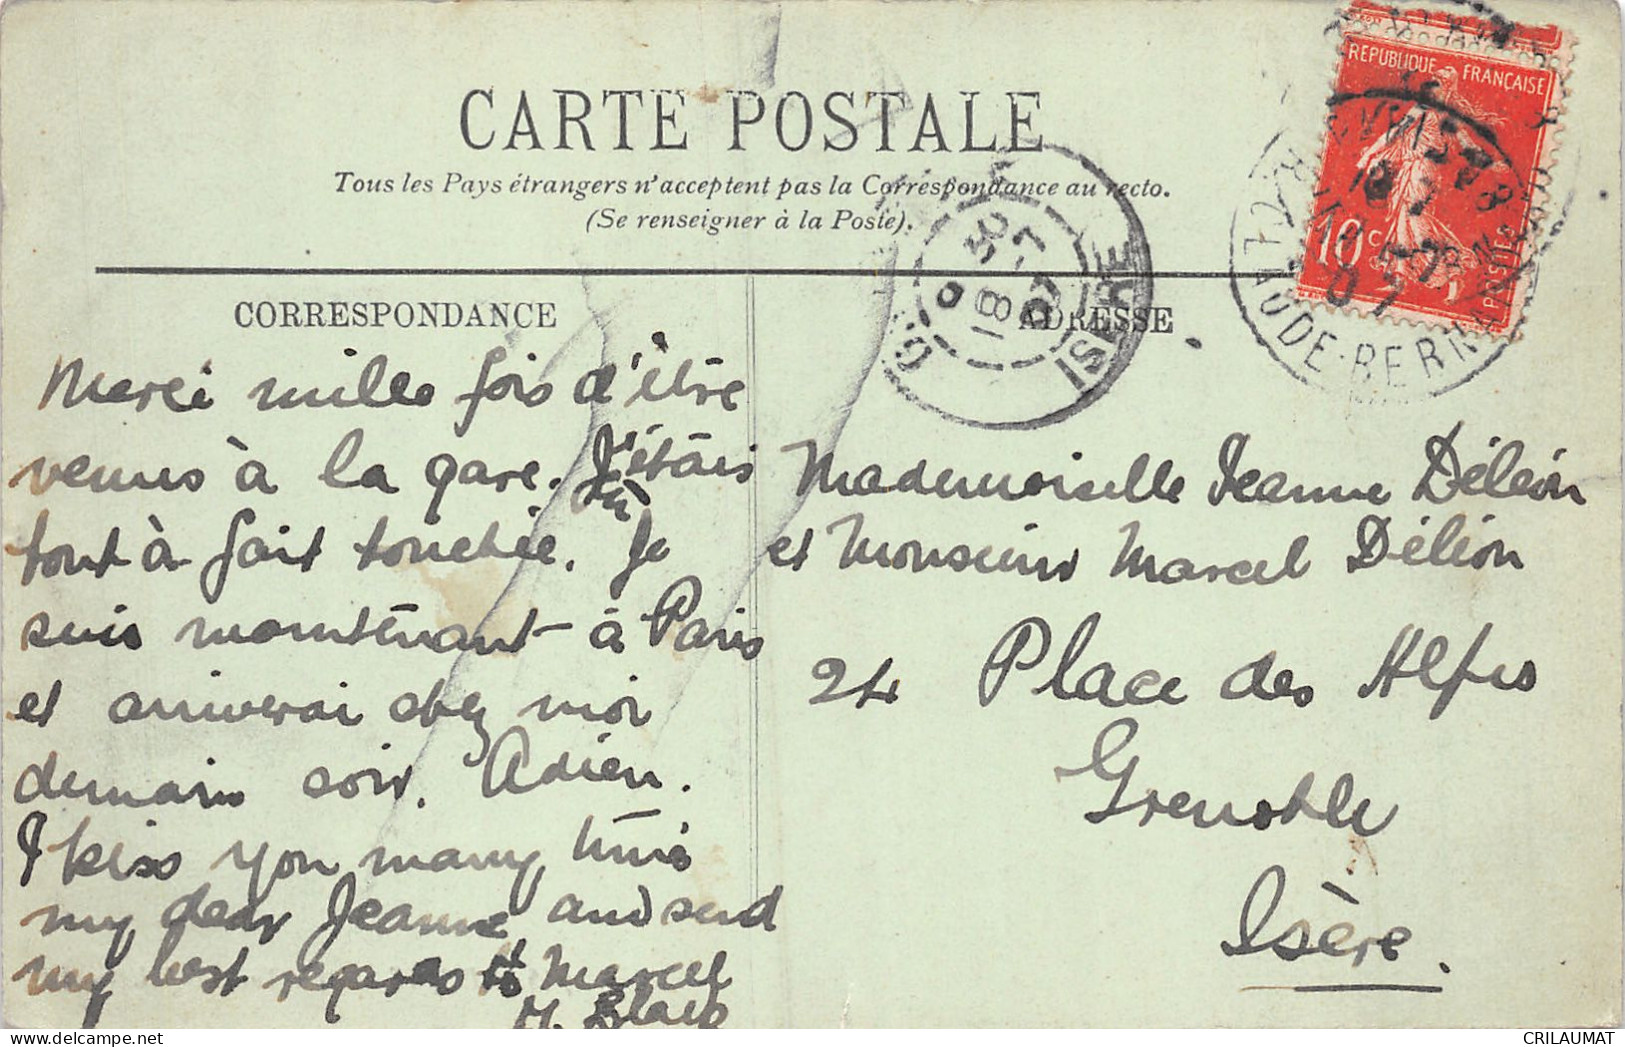 CARTE POSTALE
Tous les Pays étrangers n'acceptent pas la Correspondance au recto.
(Se renseigner à la Poste).
REPUBLIQUE FRANÇAISE
10 c
POSTES
RUE TAUDE-BERNARD
ISERE
CORRESPONDANCE
ADRESSE
Merci mille fois d'être
venus à la gare. J'étais
tout à fait touchée. Je
suis maintenant à Paris
et arriverai chez moi
demain soir. Adieu.
I kiss you many times
my dear Jeanne and send
my best regards to Marcel
M. Blake
Mademoiselle Jeanne Déléon
et Monsieur Marcel Déléon
24 Place des Alpes
Grenoble
Isère.
CRILAUMAT